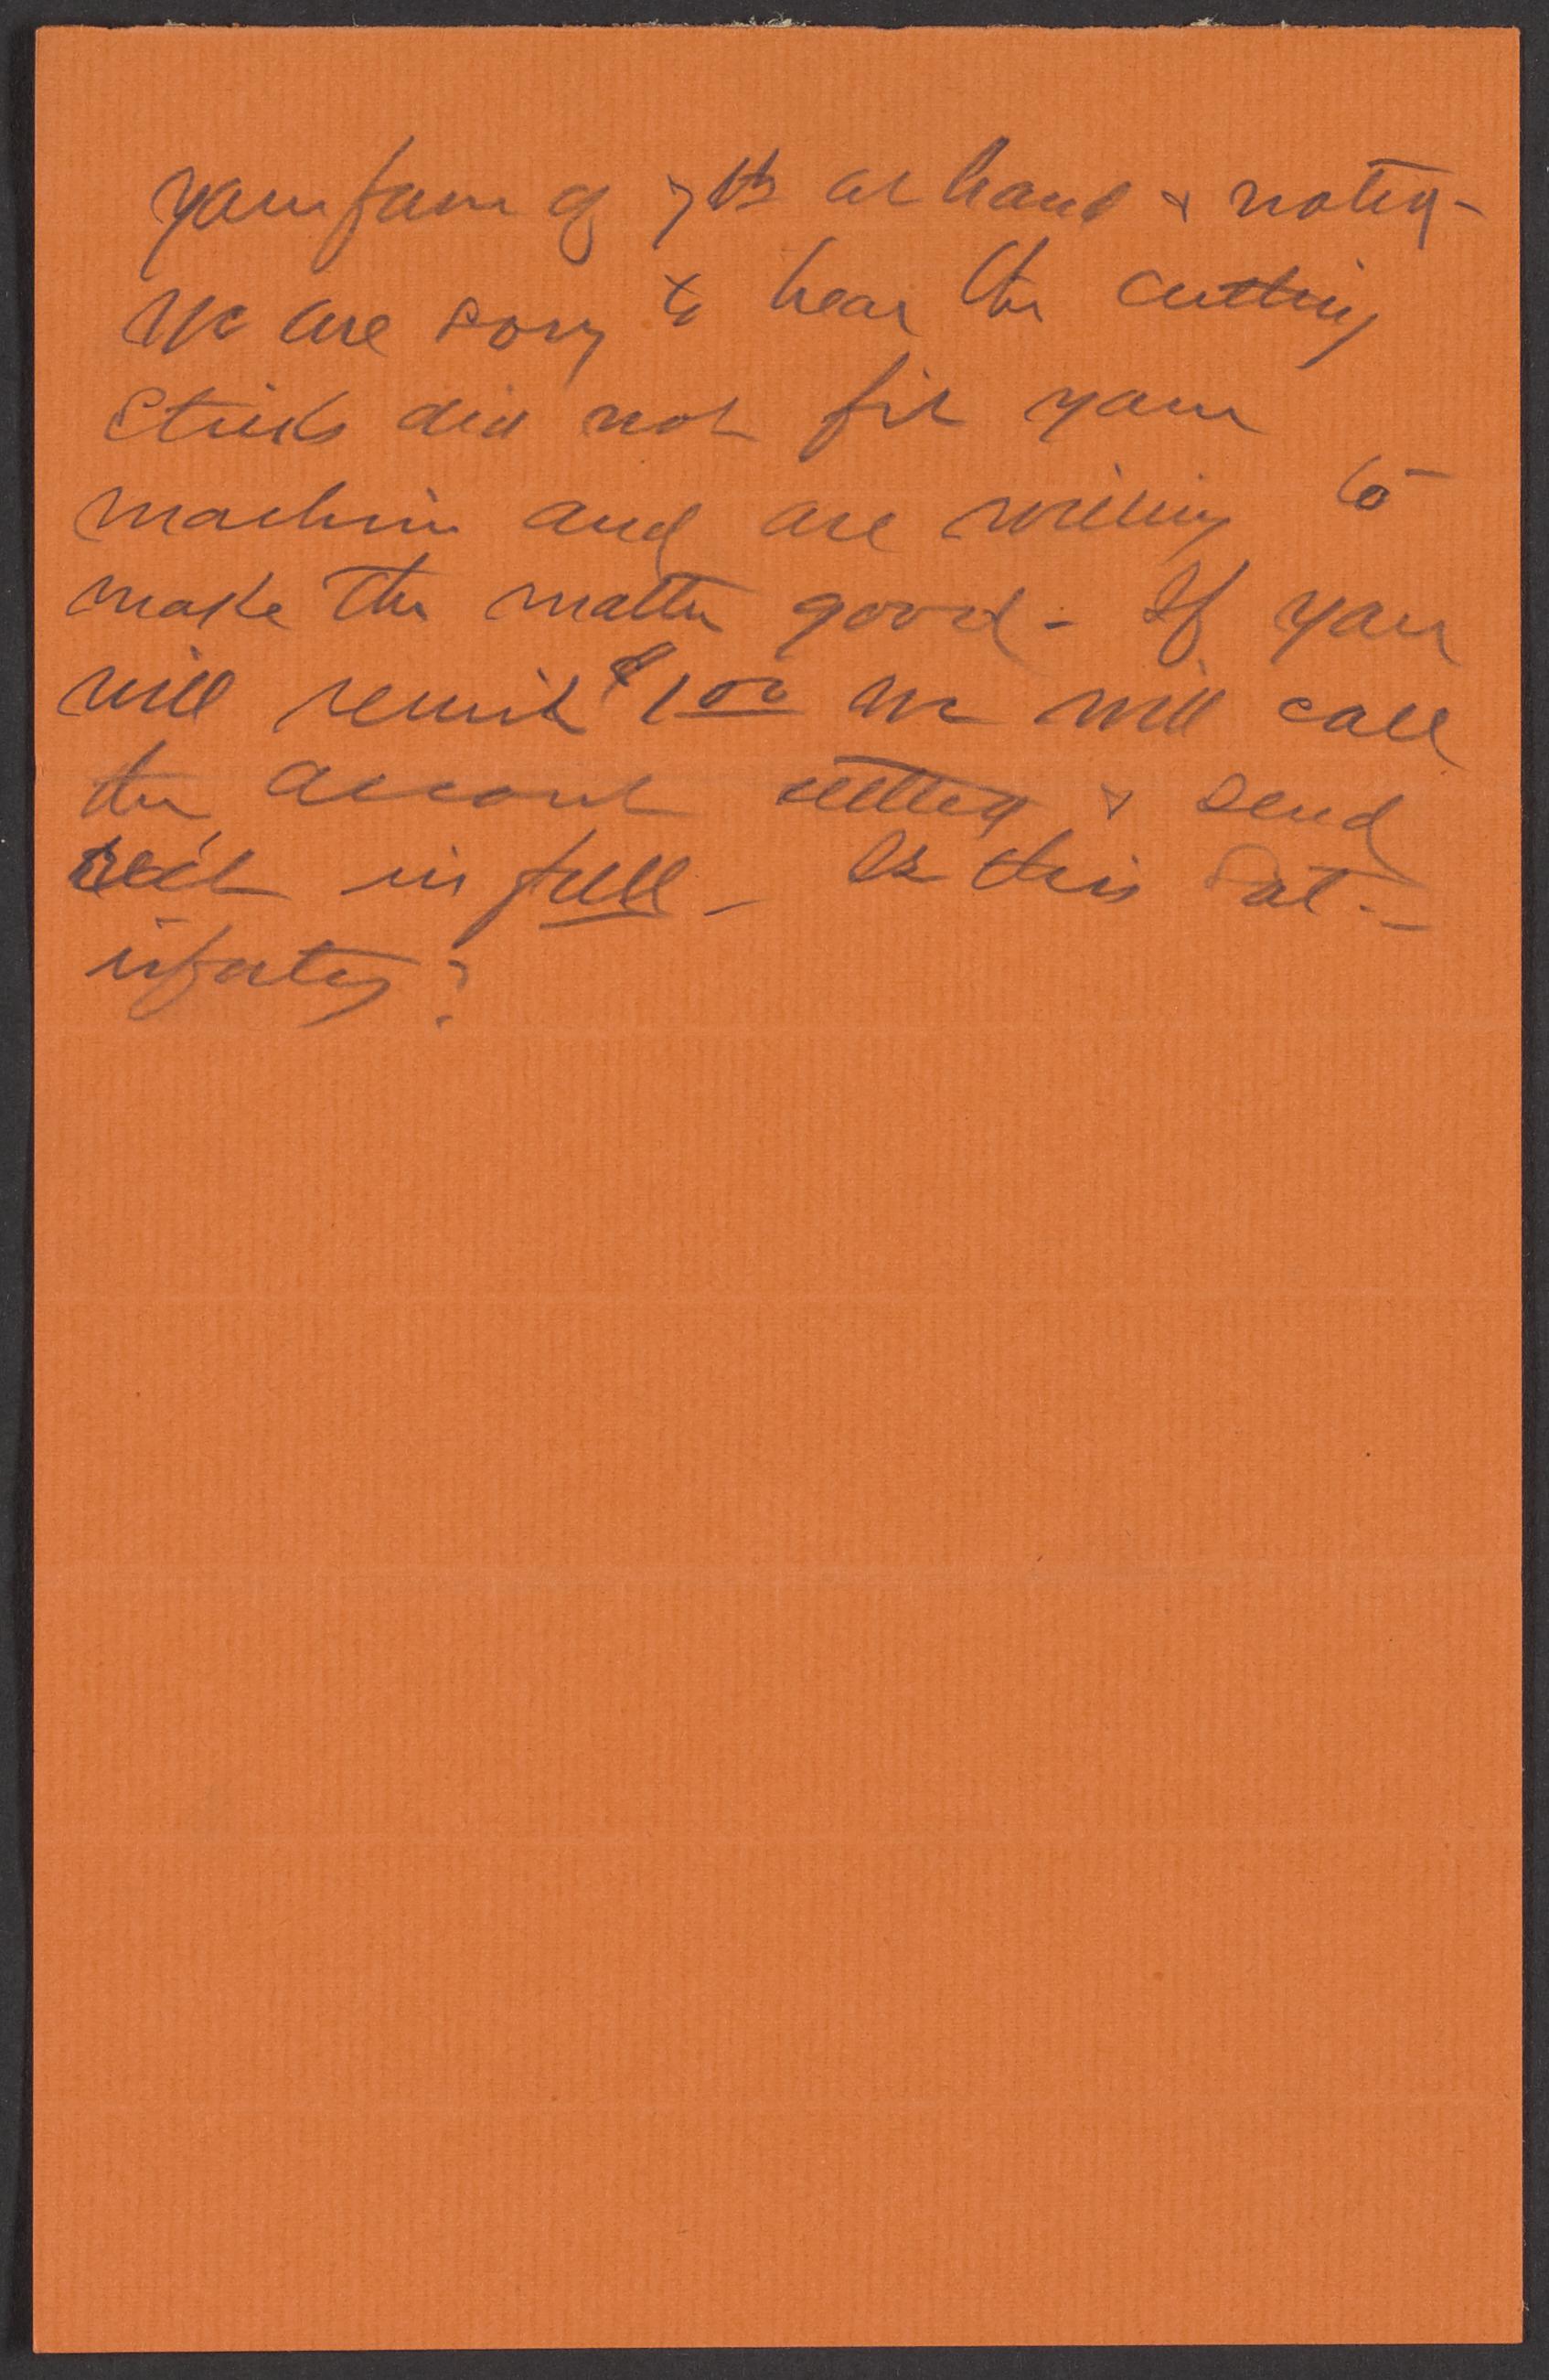 Your favor of 7th at hand & noted -
We are sorry to hear the cutting
sticks did not fit your
machine and are willing to
make the matter good - If you
will remit $1 00 we will call
the account settled & send
rec't in full - Is this sat-
isfactory?